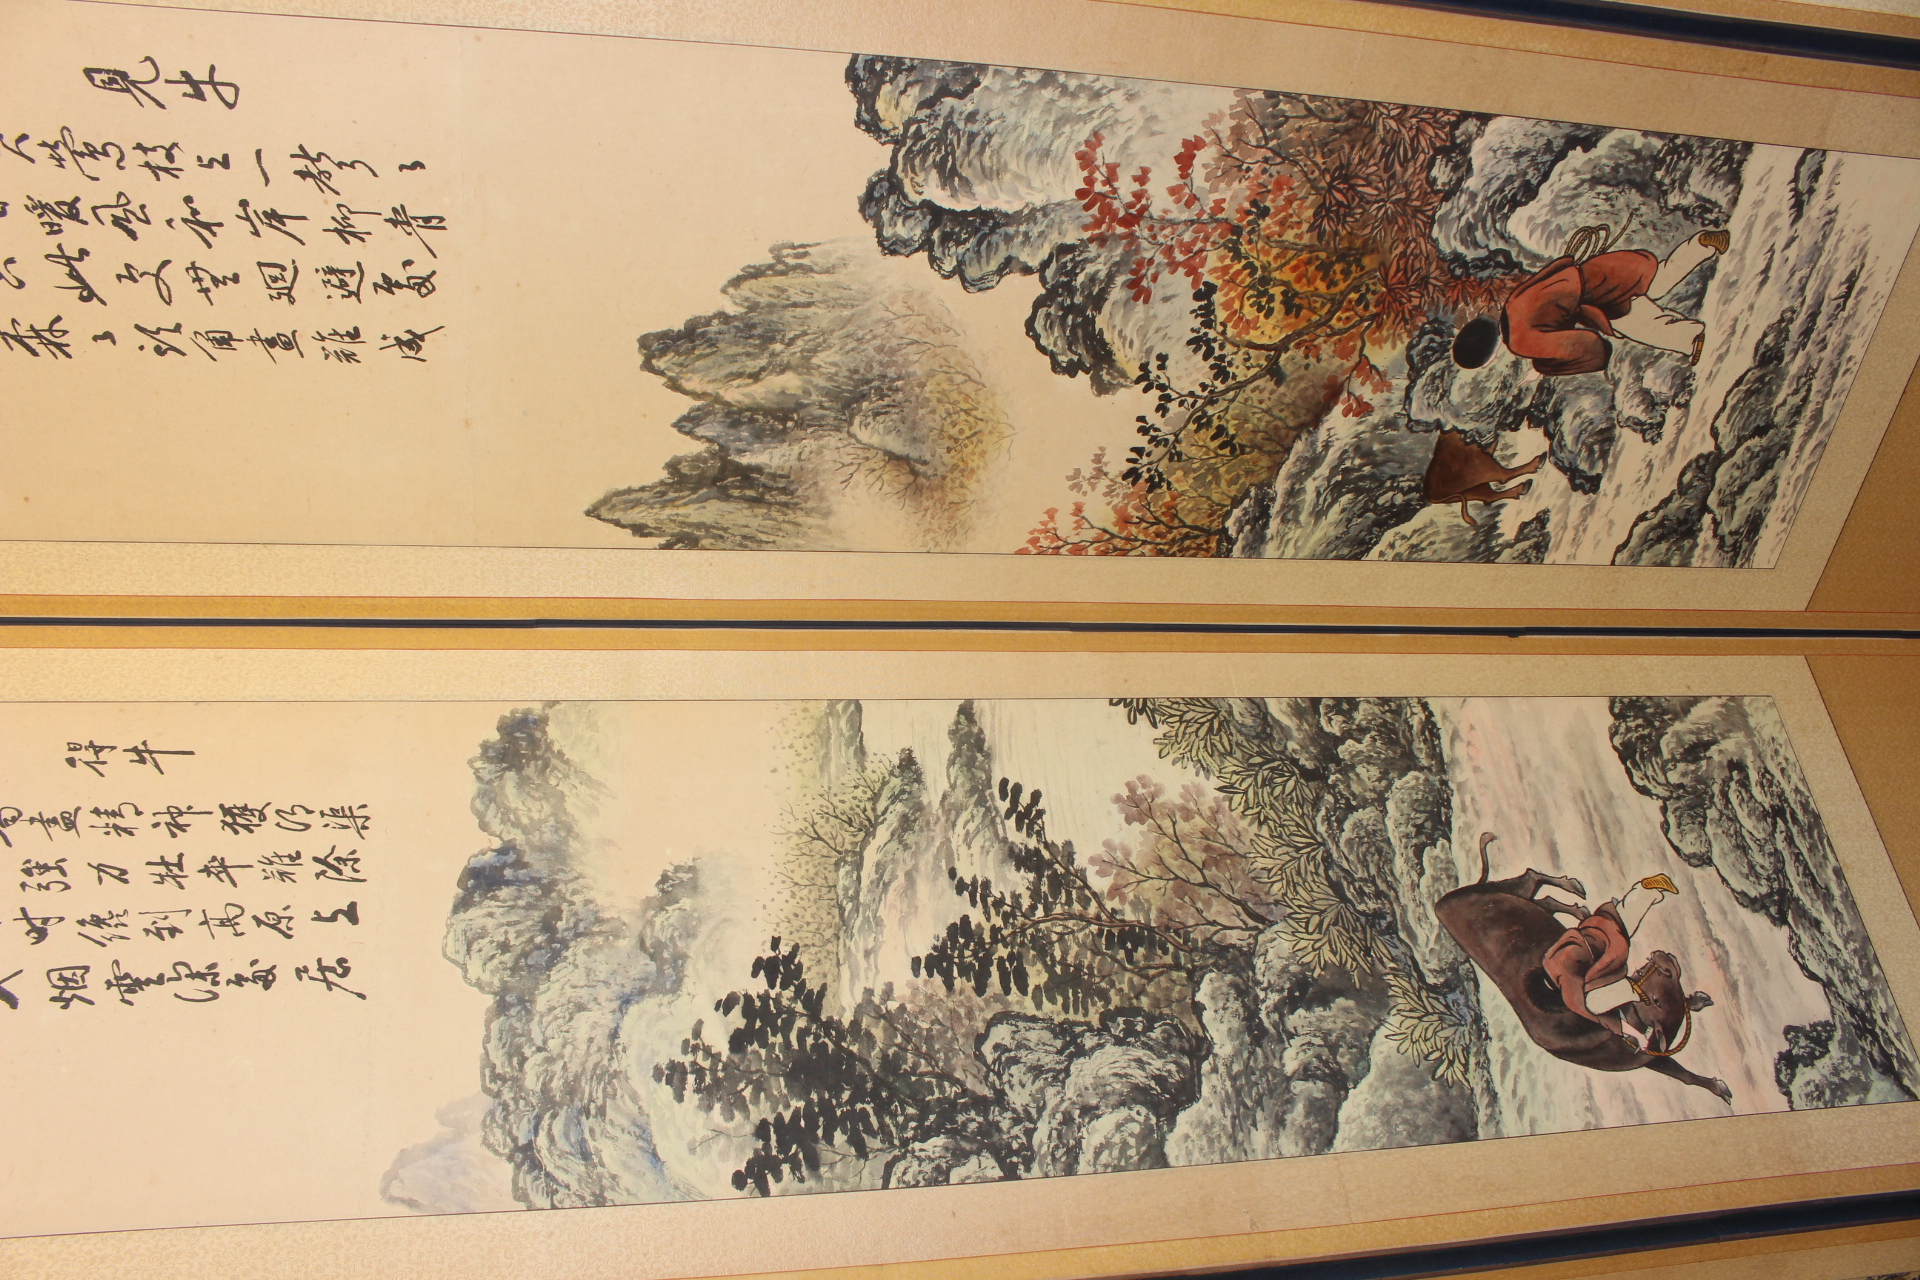 見牛
鶯枝上一聲〻
暖風和岸柳青
此更無廻避處
森〻頭角畫難成
得牛
盡精神獲得渠
強力壯卒難除
時纔到高原上
入烟雲深處居